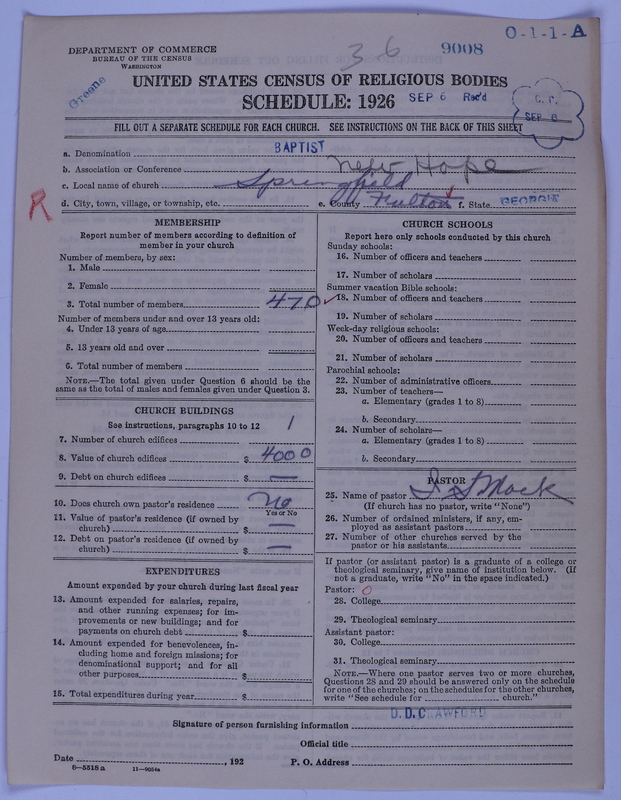 O-1-1-A
DEPARTMENT OF COMMERCE
BUREAU OF THE CENSUS
WASHINGTON
36
9008
Greene
UNITED STATES CENSUS OF RELIGIOUS BODIES
SCHEDULE: 1926
SEP 6 Rec'd
SEP 8
FILL OUT A SEPARATE SCHEDULE FOR EACH CHURCH. SEE INSTRUCTIONS ON THE BACK OF THIS SHEET
a. Denomination BAPTIST
b. Association or Conference New Hope
c. Local name of church Springfield
d. City, town, village, or township, etc. e. County Fulton f. State GEORGIA
R
MEMBERSHIP
Report number of members according to definition of
member in your church
Number of members, by sex:
1. Male
2. Female
3. Total number of members 470
Number of members under and over 13 years old:
4. Under 13 years of age
5. 13 years old and over
6. Total number of members
NOTE.—The total given under Question 6 should be the
same as the total of males and females given under Question 3.
CHURCH BUILDINGS
See instructions, paragraphs 10 to 12
7. Number of church edifices 1
8. Value of church edifices $ 4000
9. Debt on church edifices $ —
10. Does church own pastor's residence No
Yes or No
11. Value of pastor's residence (if owned by
church) $ —
12. Debt on pastor's residence (if owned by
church) $ —
EXPENDITURES
Amount expended by your church during last fiscal year
13. Amount expended for salaries, repairs,
and other running expenses; for im-
provements or new buildings; and for
payments on church debt $
14. Amount expended for benevolences, in-
cluding home and foreign missions; for
denominational support; and for all
other purposes $
15. Total expenditures during year $
CHURCH SCHOOLS
Report here only schools conducted by this church
Sunday schools:
16. Number of officers and teachers
17. Number of scholars
Summer vacation Bible schools:
18. Number of officers and teachers
19. Number of scholars
Week-day religious schools:
20. Number of officers and teachers
21. Number of scholars
Parochial schools:
22. Number of administrative officers
23. Number of teachers—
a. Elementary (grades 1 to 8)
b. Secondary
24. Number of scholars—
a. Elementary (grades 1 to 8)
b. Secondary
PASTOR
25. Name of pastor Mack
(If church has no pastor, write "None")
26. Number of ordained ministers, if any, em-
ployed as assistant pastors
27. Number of other churches served by the
pastor or his assistants
If pastor (or assistant pastor) is a graduate of a college or
theological seminary, give name of institution below. (If
not a graduate, write "No" in the space indicated.)
Pastor: 0
28. College
29. Theological seminary
Assistant pastor:
30. College
31. Theological seminary
NOTE.—Where one pastor serves two or more churches,
Questions 28 and 29 should be answered only on the schedule
for one of the churches; on the schedules for the other churches,
write "See schedule for church."
D. D. CRAWFORD
Signature of person furnishing information
Official title
Date , 192 P. O. Address
8—5518 a 11—9054a